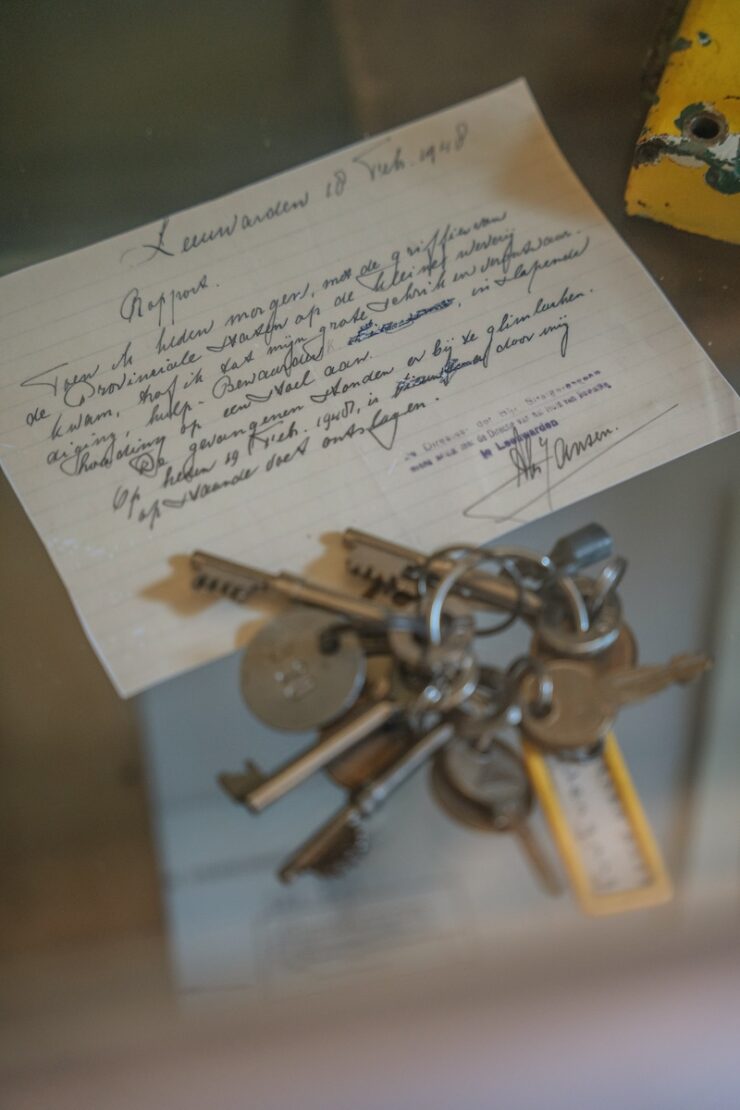 Leeuwarden 18 Feb. 1948
Rapport.
Toen ik heden morgen, met de griffier van
de Provinciale Staten op de kleine weverij
kwam, trof ik tot mijn grote schrik en verontwaar-
diging, hulp-Bewaarder K. in slapende
houding op een stoel aan.
De gevangenen stonden er bij te glimlachen.
Op heden 19 Feb. 1948, is door mij
op staande voet ontslagen.
De Directeur der
in Leeuwarden
Jansen.